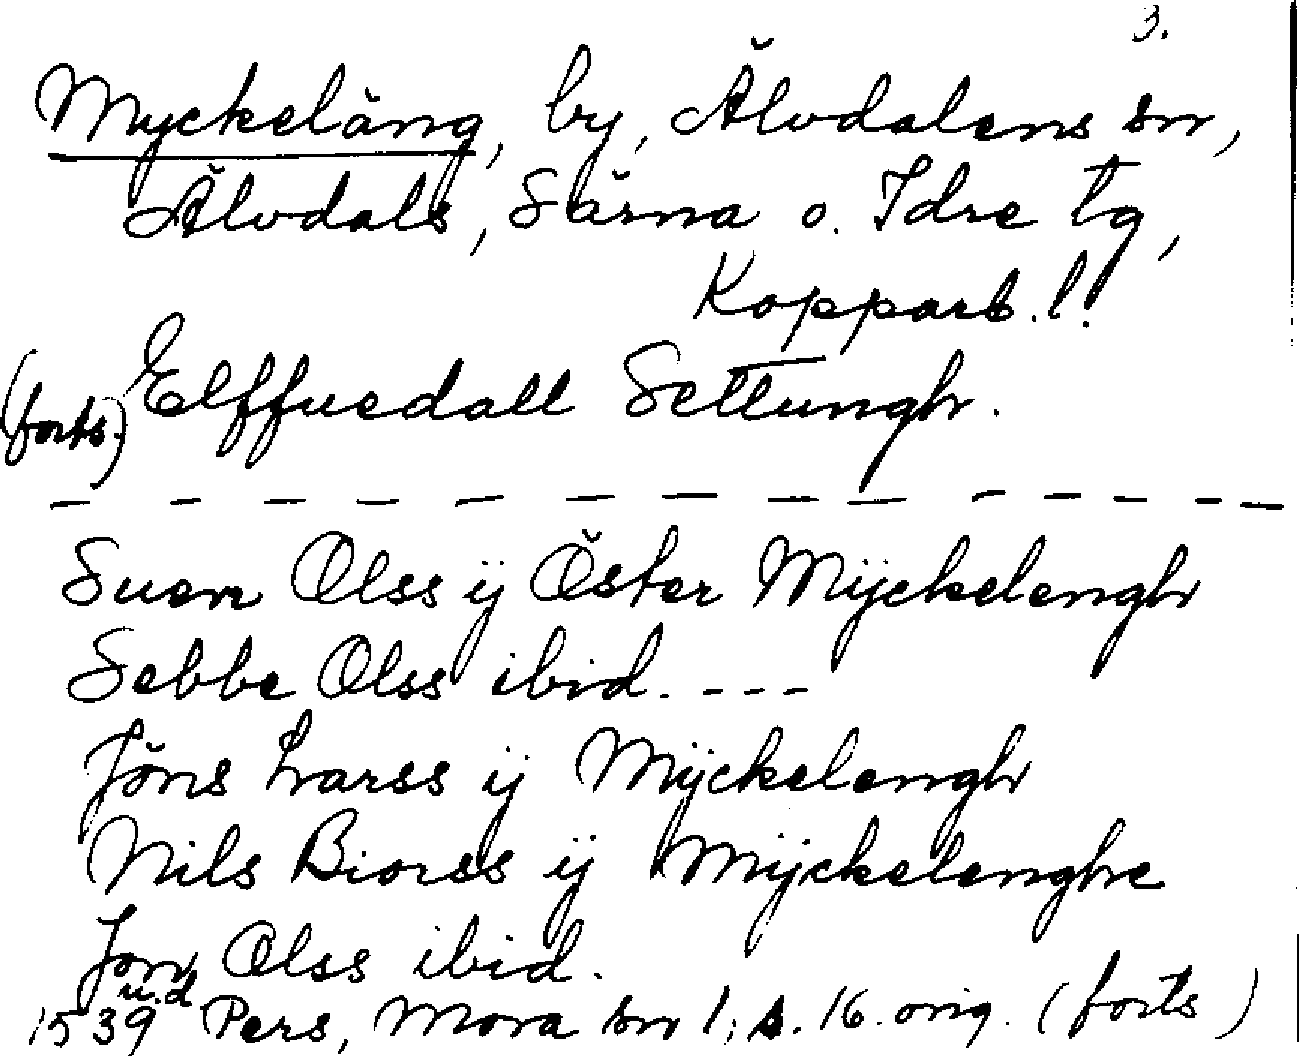 3.
Myckeläng, by, Älvdalens sn,
Älvdals, Särna o. Idre tg,
Kopparb. l.
(forts.) Elffuedall Settungh.
– – – – – – – – – – – – –
Suen Olss ÿ Öster Mÿckelengh
Sebbe Olss ibid. - - - -
Jöns Larss ÿ Mÿckelengh
Nils Biorss ÿ Mÿckelenghe
Jon Olss ibid.
1539 u.d. Pers, Mora sn 1, s. 16. orig. (forts)